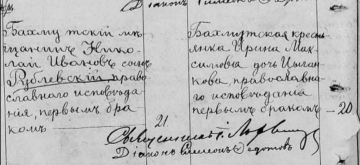 Діаконъ
Бахмутскій мѣ-
щанинъ Нико-
лай Ивановъ сынъ
Рублевскій, право-
славнаго исповѣда-
нія, первымъ бра-
комъ
Бахмутская кресть-
янка Ирина Мак-
симова дочь
православна-
го исповѣданія
первымъ бракомъ
20
21
Священникъ
Діаконъ Симеонъ Федотовъ